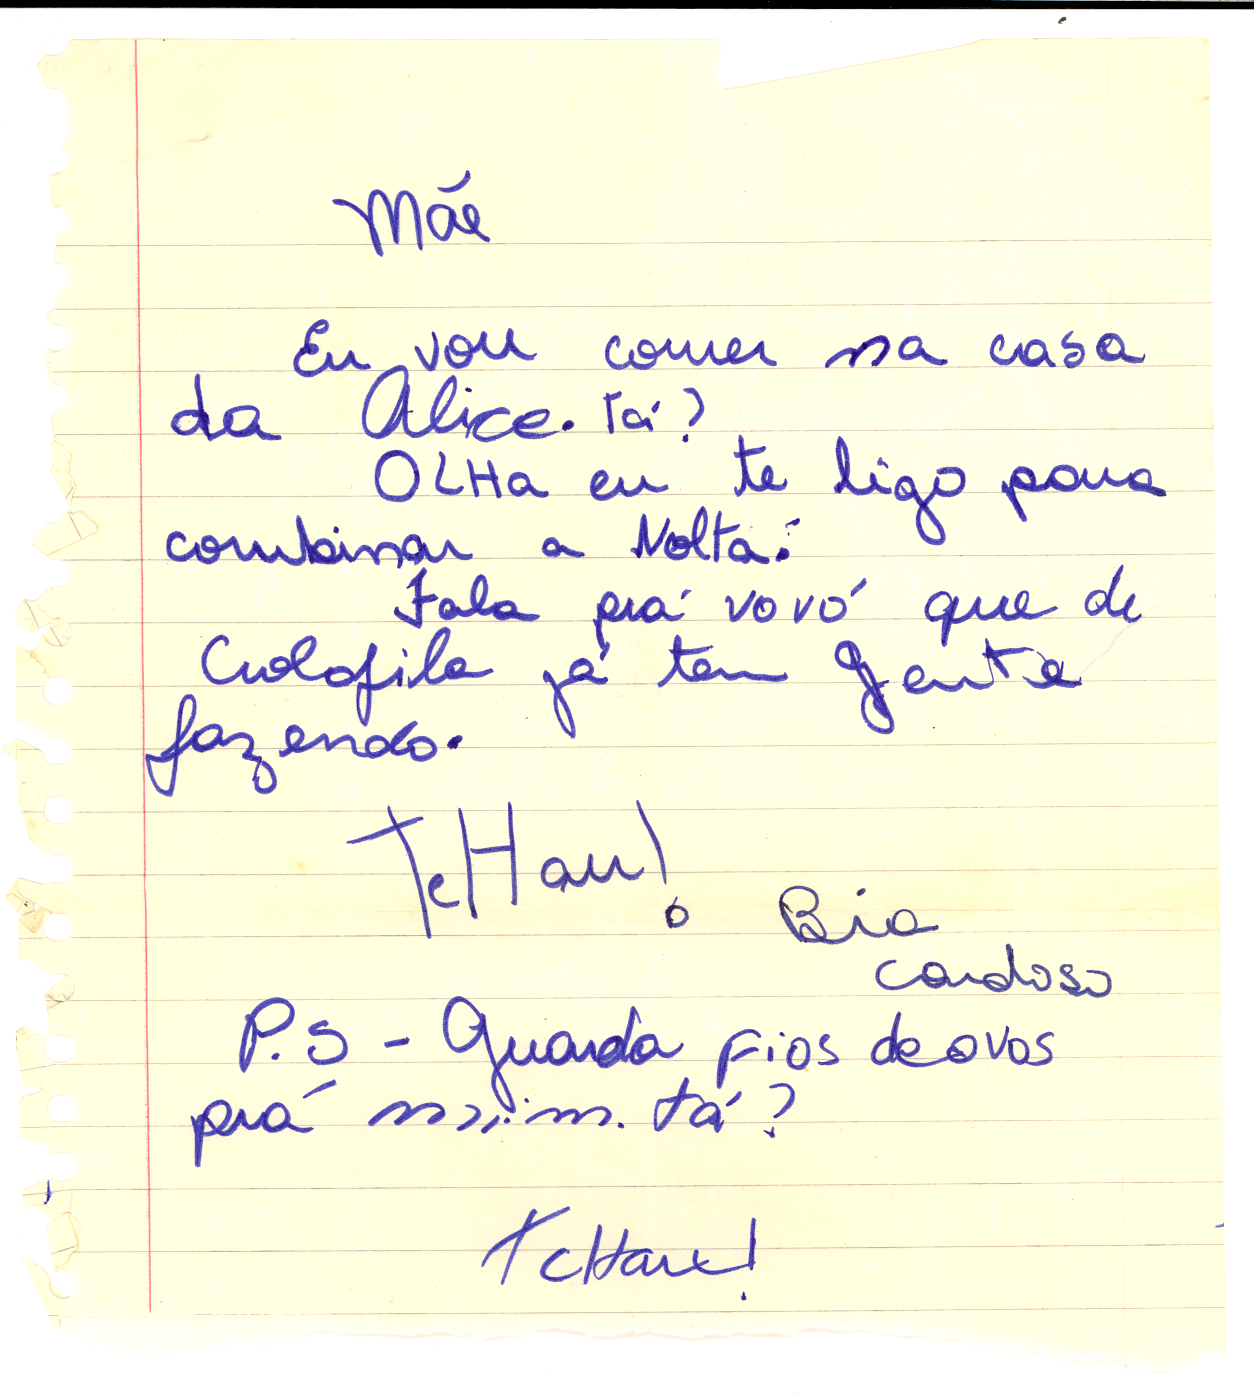 Mãe
Eu vou comer na casa
da Alice. Tá?
OLHa eu te ligo para
combinar a Volta.
Fala prá vovó que de
Culofila já tem gente
fazendo.
TcHau!
Bia
Cardoso
P.S - Guarda Fios de ovos
prá mim. tá?
TcHau!